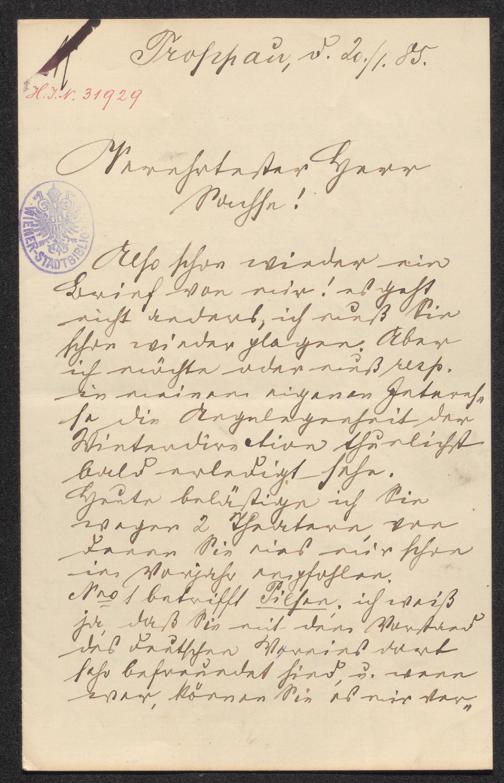 Troppau, d. 20./1. 85.
H.I.N. 31929
Verehrtester Herr
Sachse!
WIENER-STADTBIBLIO
Also schon wieder ein
Brief von mir! es geht
nicht anders, ich muß Sie
schon wieder plagen. Aber
ich möchte oder muß resp.
in meinem eigenen Interes-
se die Angelegenheit der
Winterdirection thunlichst
bald erledigt sehe.
Heute belästige ich Sie
wegen 2 Theatern, von
denen Sie eins mir schon
im Vorjahr empfohlen.
Nro 1 betrifft Pilsen, ich weiß
ja, daß Sie mit dem Vorstand
des deutschen Vereines dort
sehr befreundet sind, u. wenn
wer, können Sie es mir ver-